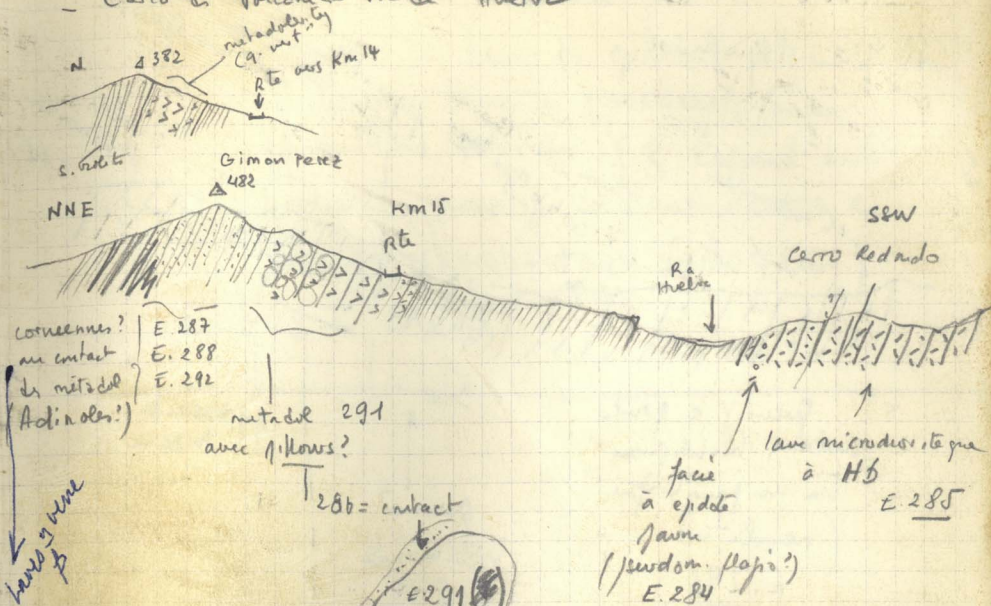 Huelva
N
△ 382
metadolerites
(q. vert?)
Rte vers Km 14
Gimon Perez
△ 482
NNE
Km 15
Rte
SSW
Cerro Redondo
Ra
Huelva
?
cornéennes?
au contact
des métadol
Adinoles?)
E. 287
E. 288
E. 292
metadol 291
avec pillows?
286 = contact
E. 291
faciès
à epidote
jaune
(pseudom. plagio?)
E. 284
lave microdioritique
à Hb
E. 285